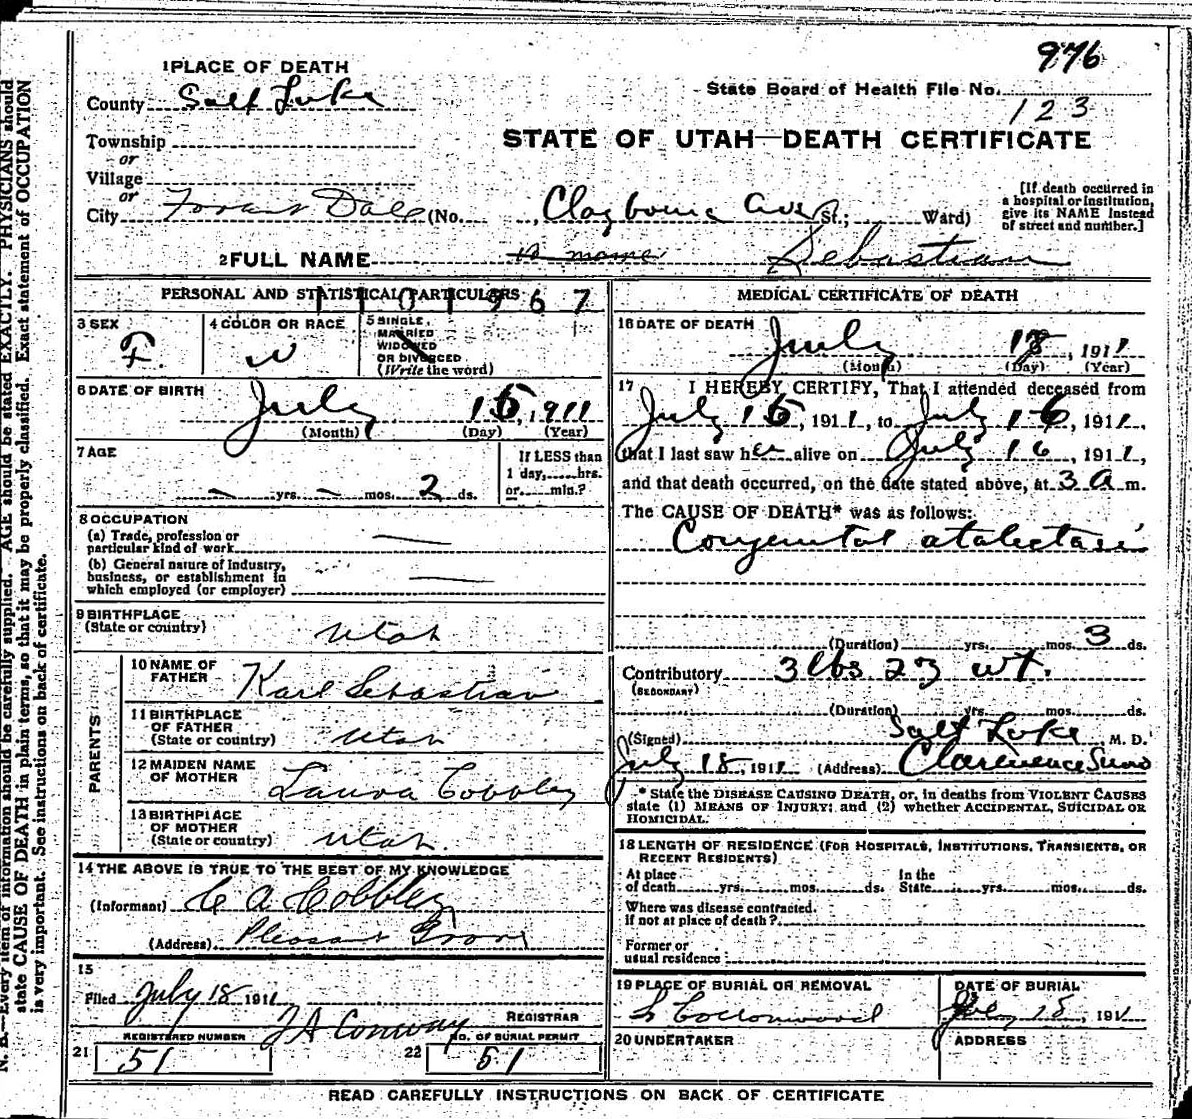 976
1 PLACE OF DEATH
State Board of Health File No.
123
County Salt Lake
Township
or
Village
or
City Forest Dale (No. , Claybourne Ave St.; Ward)
STATE OF UTAH—DEATH CERTIFICATE
[If death occurred in
a hospital or institution,
give its NAME instead
of street and number.]
2 FULL NAME no name Sebastian
PERSONAL AND STATISTICAL PARTICULARS
1101967
3 SEX
F.
4 COLOR OR RACE
W
5 SINGLE,
MARRIED
WIDOWED
OR DIVORCED
(Write the word)
6 DATE OF BIRTH
July 16, 1911
(Month) (Day) (Year)
7 AGE
— yrs. — mos. 2 ds.
If LESS than
1 day, hrs.
or min.?
8 OCCUPATION
(a) Trade, profession or
particular kind of work
(b) General nature of industry,
business, or establishment in
which employed (or employer)
9 BIRTHPLACE
(State or country) Utah
PARENTS
10 NAME OF
FATHER Karl Sebastian
11 BIRTHPLACE
OF FATHER
(State or country) Utah
12 MAIDEN NAME
OF MOTHER Laura Cobbley
13 BIRTHPLACE
OF MOTHER
(State or country) Utah.
14 THE ABOVE IS TRUE TO THE BEST OF MY KNOWLEDGE
(Informant) C A Cobbley
(Address) Pleasant Grove
15
Filed July 18 1911
J A Conway REGISTRAR
REGISTERED NUMBER
21 51
NO. OF BURIAL PERMIT
22 51
MEDICAL CERTIFICATE OF DEATH
16 DATE OF DEATH
July 18, 1911
(Month) (Day) (Year)
17 I HEREBY CERTIFY, That I attended deceased from
July 16, 1911, to July 16, 1911,
that I last saw her alive on July 16, 1911,
and that death occurred, on the date stated above, at 3 A m.
The CAUSE OF DEATH* was as follows:
Congenital atalectasis
(Duration) yrs. mos. 3 ds.
Contributory 3 lbs 23 wt.
(SECONDARY)
(Duration) yrs. mos. ds.
(Signed) Salt Lake M. D.
July 18, 1911 (Address) Clarence Snow
* State the DISEASE CAUSING DEATH, or, in deaths from VIOLENT CAUSES
state (1) MEANS OF INJURY; and (2) whether ACCIDENTAL, SUICIDAL OR
HOMICIDAL.
18 LENGTH OF RESIDENCE (FOR HOSPITALS, INSTITUTIONS, TRANSIENTS, OR
RECENT RESIDENTS)
At place
of death yrs. mos. ds.
In the
State yrs. mos. ds.
Where was disease contracted,
if not at place of death?
Former or
usual residence
19 PLACE OF BURIAL OR REMOVAL
S Cottonwood
DATE OF BURIAL
July 18, 1911
20 UNDERTAKER
ADDRESS
READ CAREFULLY INSTRUCTIONS ON BACK OF CERTIFICATE
N. B.—Every item of information should be carefully supplied. AGE should be stated EXACTLY. PHYSICIANS should
state CAUSE OF DEATH in plain terms, so that it may be properly classified. Exact statement of OCCUPATION
is very important. See instructions on back of certificate.